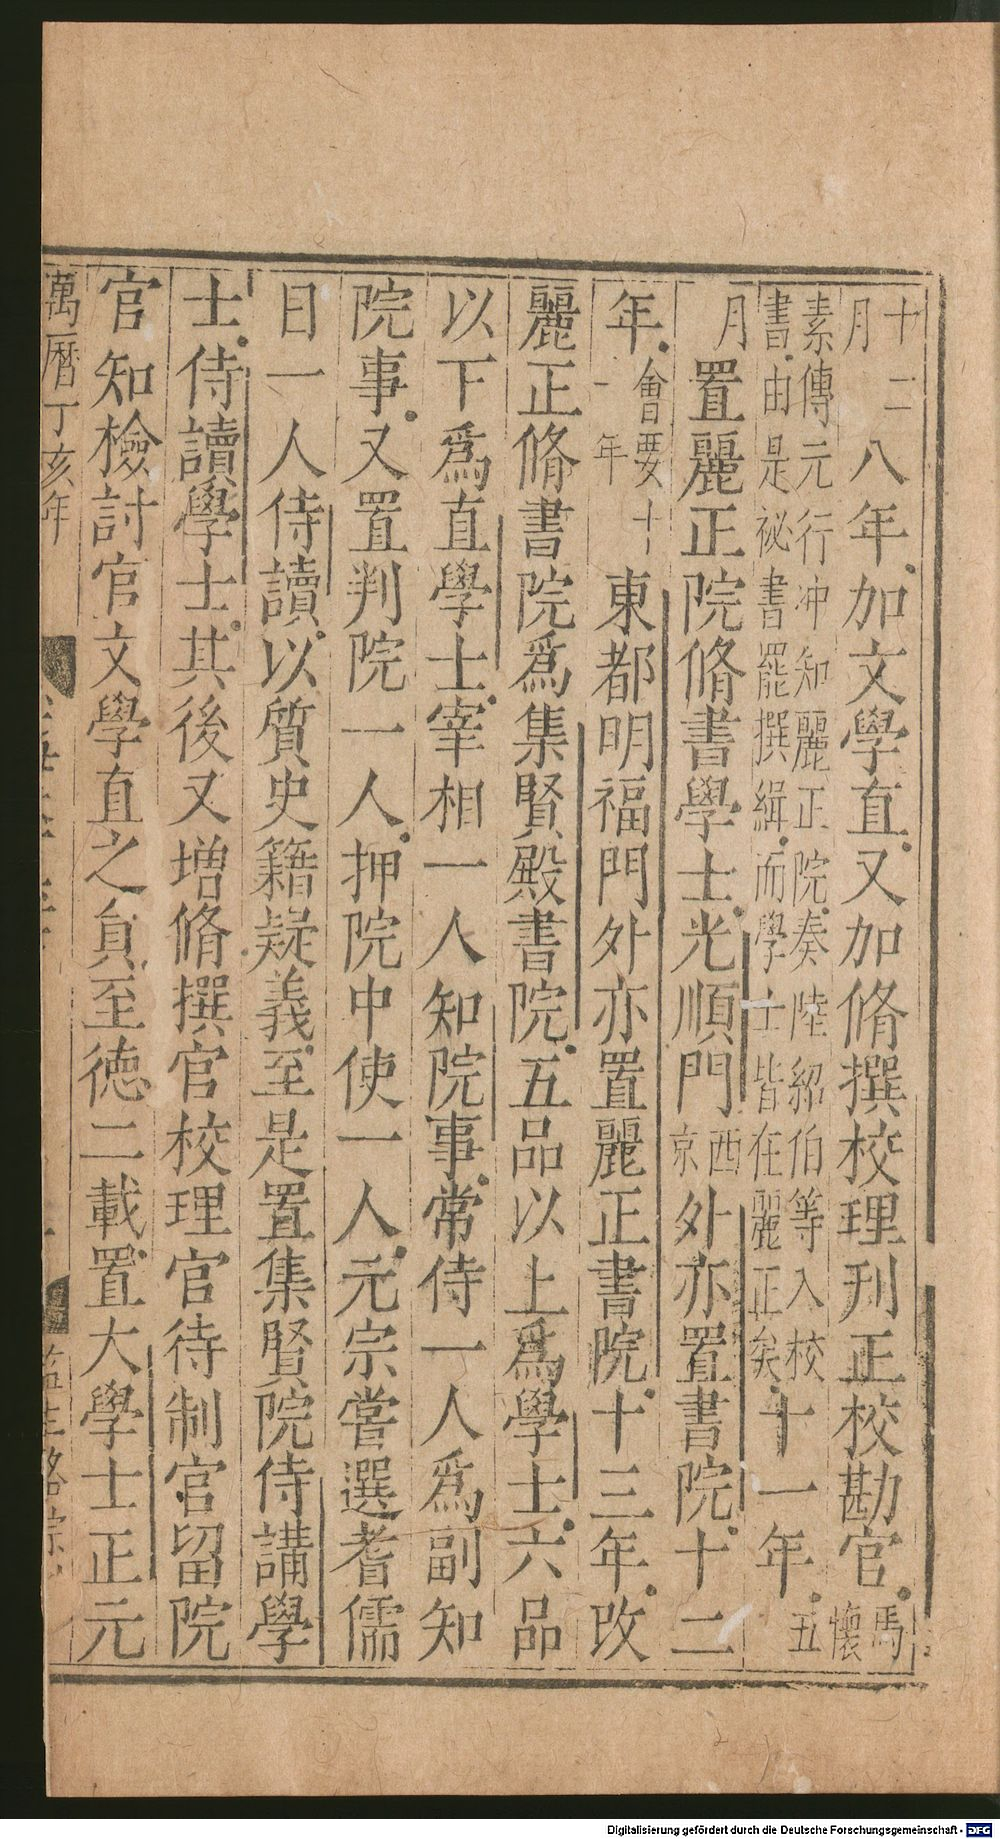 十二月八年加文學直又加脩撰校理刊正校勘官馬懷
素傳元行冲知麗正院奏陸紹伯等入校書由是祕書罷撰緝而學士皆在麗正矣十一年五
月置麗正院脩書學士光順門西京外亦置書院十二
年會要十一年東都明福門外亦置麗正書院十三年改
麗正脩書院爲集賢殿書院五品以上爲學士六品
以下爲直學士宰相一人知院事常侍一人爲副知
院事又置判院一人押院中使一人元宗嘗選耆儒
日一人侍讀以質史籍疑義至是置集賢院侍講學
士侍讀學士其後又增脩撰官校理官待制官留院
官知檢討官文學直之員至德二載置大學士正元
萬曆丁亥年
Digitalisierung gefördert durch die Deutsche Forschungsgemeinschaft - DFG